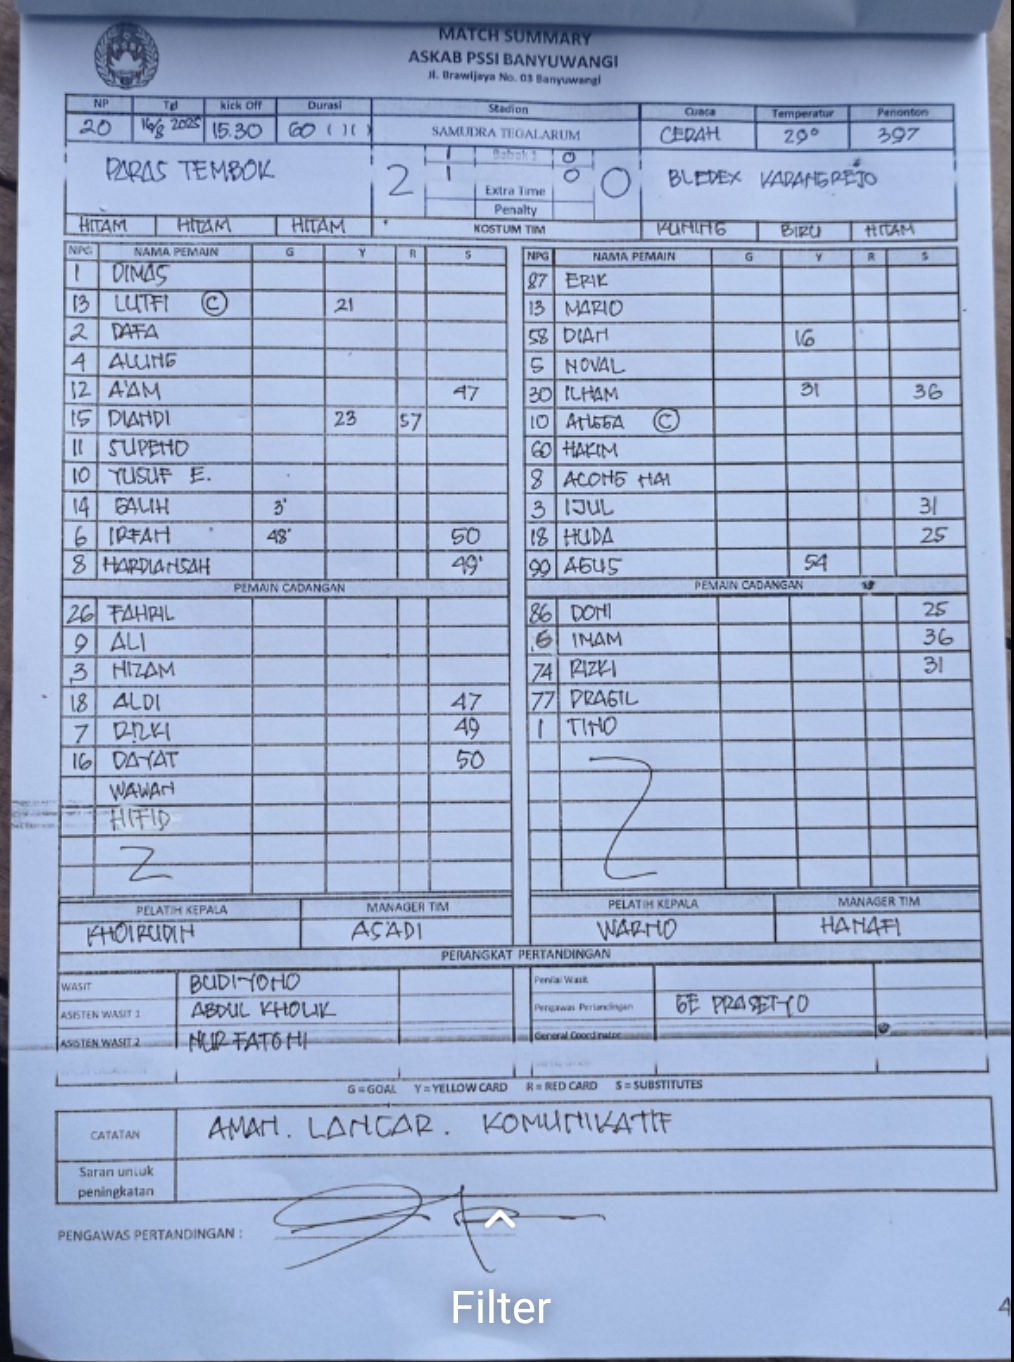 MATCH SUMMARY
ASKAB PSSI BANYUWANGI
Jl. Brawijaya No. 03 Banyuwangi
NP Tgl kick Off Durasi Stadion Cuaca Temperatur Penonton
20 16/8 2025 15.30 60 ( ) ( ) SAMUDRA TEGALARUM CERAH 29° 397
PARAS TEMBOK 2 1 Babak 1 0 0 BLEDEX KARANGREJO
1 0
Extra Time
Penalty
HITAM HITAM HITAM KOSTUM TIM KUNING BIRU HITAM
NPG NAMA PEMAIN G Y R S NPG NAMA PEMAIN G Y R S
1 DIMAS 87 ERIK
13 LUTFI C 21 13 MARIO
2 DAFA 58 DIAN 16
4 ALUNG 5 NOVAL
12 A'AM 47 30 ILHAM 31 36
15 DIANDI 23 57 10 ANGGA C
11 SUPENO 60 HAKIM
10 YUSUF E. 8 ACONG NAI
14 GALIH 3' 3 IJUL 31
6 IRFAN 48' 50 18 HUDA 25
8 HARDIANSAH 49' 99 AGUS 54
PEMAIN CADANGAN PEMAIN CADANGAN
26 FAHRIL 86 DONI 25
9 ALI 6 IMAM 36
3 NIZAM 74 RIZKI 31
18 ALDI 47 77 PRAGIL
7 RIZKI 49 1 TINO
16 DAYAT 50
WAWAN
HIFID
PELATIH KEPALA MANAGER TIM PELATIH KEPALA MANAGER TIM
KHOIRUDIN ASADI WARNO HANAFI
PERANGKAT PERTANDINGAN
WASIT BUDIYONO Penilai Wasit
ASISTEN WASIT 1 ABDUL KHOLIK Pengawas Pertandingan GE PRASETYO
ASISTEN WASIT 2 NUR FATONI General Coordinator
G = GOAL Y = YELLOW CARD R = RED CARD S = SUBSTITUTES
CATATAN AMAN. LANCAR. KOMUNIKATIF
Saran untuk
peningkatan
PENGAWAS PERTANDINGAN :
Filter
4